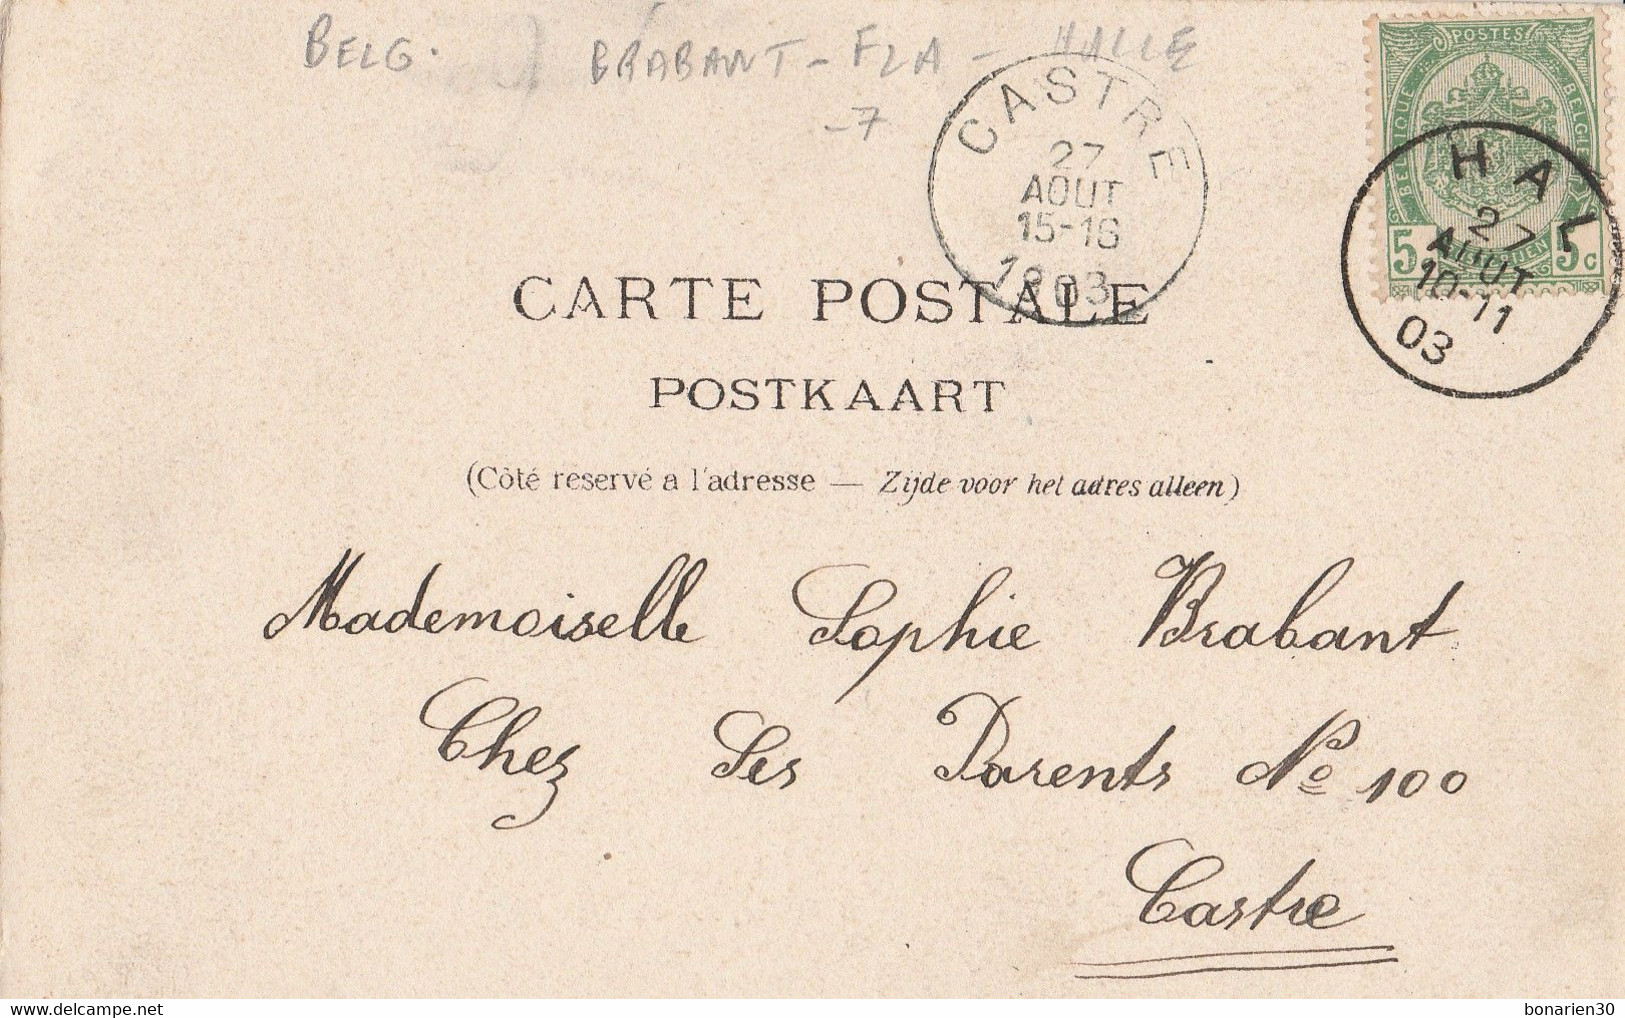 BELG. BRABANT - FLA - HALLE
-7
CASTRE
27
AOUT
15-16
1903
POSTES
BELGIQUE
BELGIE
5 c 5 c
HAL
27
AOUT
10-11
03
CARTE POSTALE
POSTKAART
(Côté reservé a l'adresse — Zijde voor het adres alleen)
Mademoiselle Sophie Brabant
Chez Ses Parents No 100
Castre
bonarien30